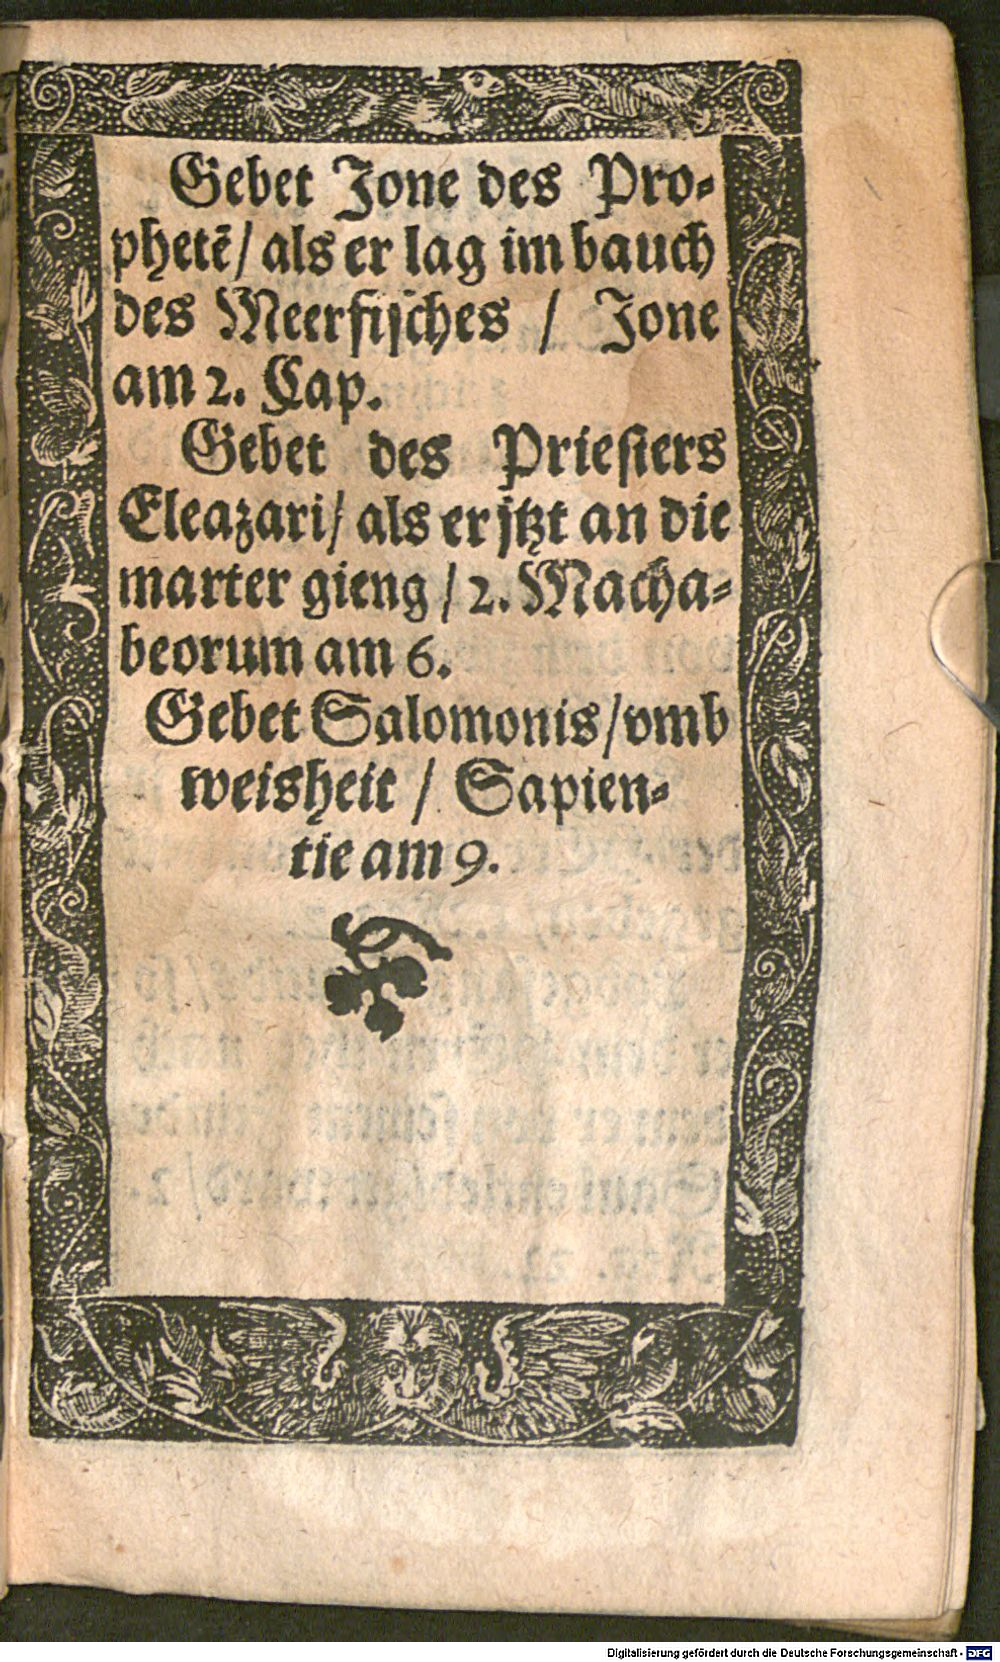 Gebet Jone des Pro⸗
phetē/ als er lag im bauch
des Meerfisches / Jone
am 2. Cap.
Gebet des Priesters
Eleazari/ als er jtzt an die
marter gieng / 2. Macha⸗
beorum am 6.
Gebet Salomonis/ vmb
weisheit / Sapien⸗
tie am 9.
Digitalisierung gefördert durch die Deutsche Forschungsgemeinschaft - DFG